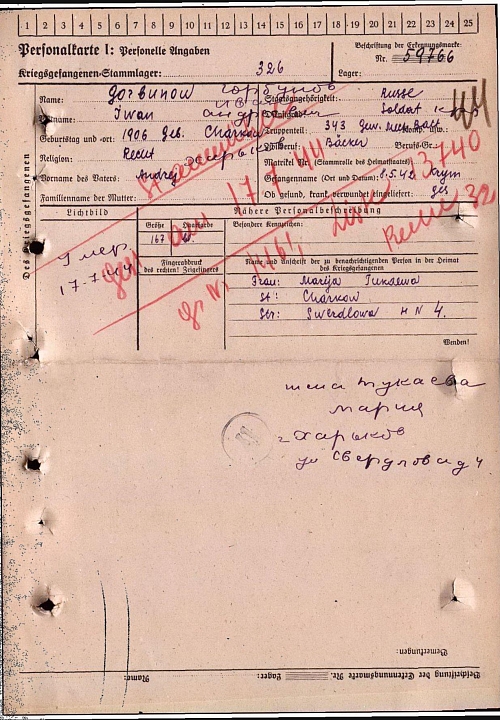 1 2 3 4 5 6 7 8 9 10 11 12 13 14 15 16 17 18 19 20 21 22 23 24 25
Personalkarte I: Personelle Angaben
Beschriftung der Erkennungsmarke:
Nr. 59766
Kriegsgefangenen-Stammlager: 326
Lager:
Des Kriegsgefangenen
Name: Gorbunow Горбунов
Staatsangehörigkeit: Russe
Vorname: Iwan Иван
Dienstgrad: Soldat
44
Geburtstag und -ort: 1906 Geb. Charkow
Truppenteil: 343
Religion: Recht
Zivilberuf: Bäcker Berufs-Gr.:
Matrikel Nr. (Stammrolle des Heimatstaates)
Vorname des Vaters: Andrej
Gefangennahme (Ort und Datum): 8.5.42 Krym
Familienname der Mutter:
Ob gesund, krank, verwundet eingeliefert: ges
gest. am 17.7.44
Gr. Nr. 1461,
13740
Reihe 32
Lichtbild
Nähere Personalbeschreibung
Größe
Haarfarbe
Besondere Kennzeichen:
167
Умер
17.7.44
Fingerabdruck
des rechten! Zeigefingers
Name und Anschrift der zu benachrichtigenden Person in der Heimat
des Kriegsgefangenen
Frau: Marija Tukaewa
St: Charkow
Str: Swerdlowa H N 4.
Wenden!
жена Тукаева
Мария
г Харьков
ул Свердлова д 4
Bemerkungen:
Beschriftung der Erkennungsmarke Nr.
Lager:
Name: